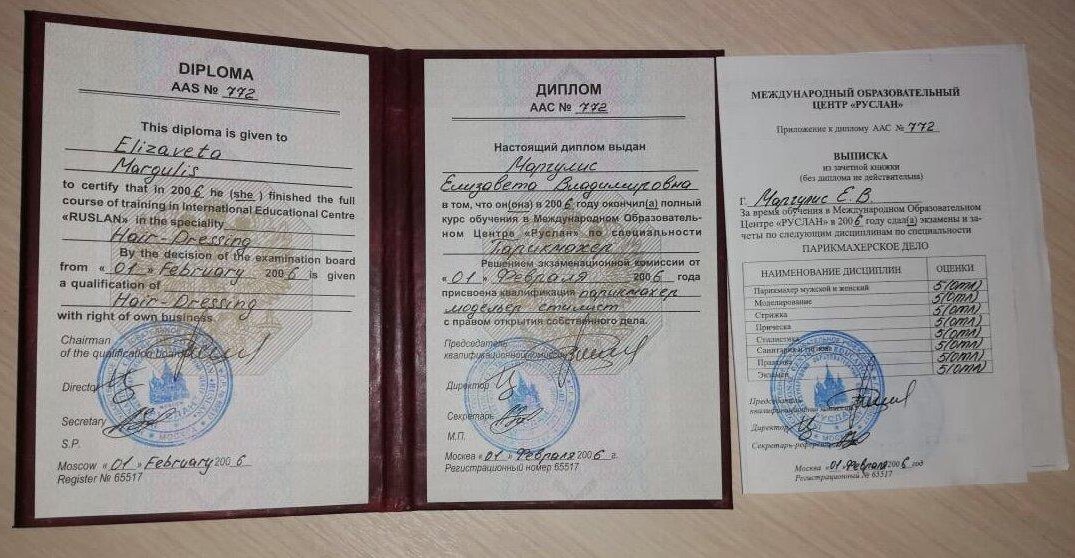 DIPLOMA
AAS № 772
This diploma is given to
Elizaveta
Margulis
to certify that in 2006 he (she ) finished the full
course of training in International Educational Centre
«RUSLAN» in the speciality
Hair-Dressing
By the decision of the examination board
from «01» February 2006 is given
a qualification of
Hair-Dressing
with right of own business.
Chairman
of the qualification board
Director
Secretary
S.P.
Moscow «01» February 2006
Register № 65517
ДИПЛОМ
ААС № 772
Настоящий диплом выдан
Маргулис
Елизавета Владимировна
в том, что он(она) в 2006 году окончил(а) полный
курс обучения в Международном Образователь-
ном Центре «Руслан» по специальности
Парикмахер
Решением экзаменационной комиссии от
«01» Февраля 2006 года
присвоена квалификация парикмахер
модельер стилист
с правом открытия собственного дела.
Председатель
квалификационной комиссии
Директор
Секретарь
М.П.
Москва «01» Февраля 2006 г.
Регистрационный номер 65517
МЕЖДУНАРОДНЫЙ ОБРАЗОВАТЕЛЬНЫЙ
ЦЕНТР «РУСЛАН»
Приложение к диплому ААС № 772
ВЫПИСКА
из зачетной книжки
(без диплома не действительна)
г. Маргулис Е.В.
За время обучения в Международном Образовательном
Центре «РУСЛАН» в 2006 году сдал(а) экзамены и за-
четы по следующим дисциплинам по специальности
ПАРИКМАХЕРСКОЕ ДЕЛО
НАИМЕНОВАНИЕ ДИСЦИПЛИН ОЦЕНКИ
Парикмахер мужской и женский 5(отл)
Моделирование 5(отл)
Стрижка 5(отл)
Прическа 5(отл)
Стилистика 5(отл)
Санитария и гигиена 5(отл)
Практика 5(отл)
Экзамен 5(отл)
Председатель
квалификационной комиссии
Директор
Секретарь-референт
Москва «01» Февраля 2006 год
Регистрационный № 65517